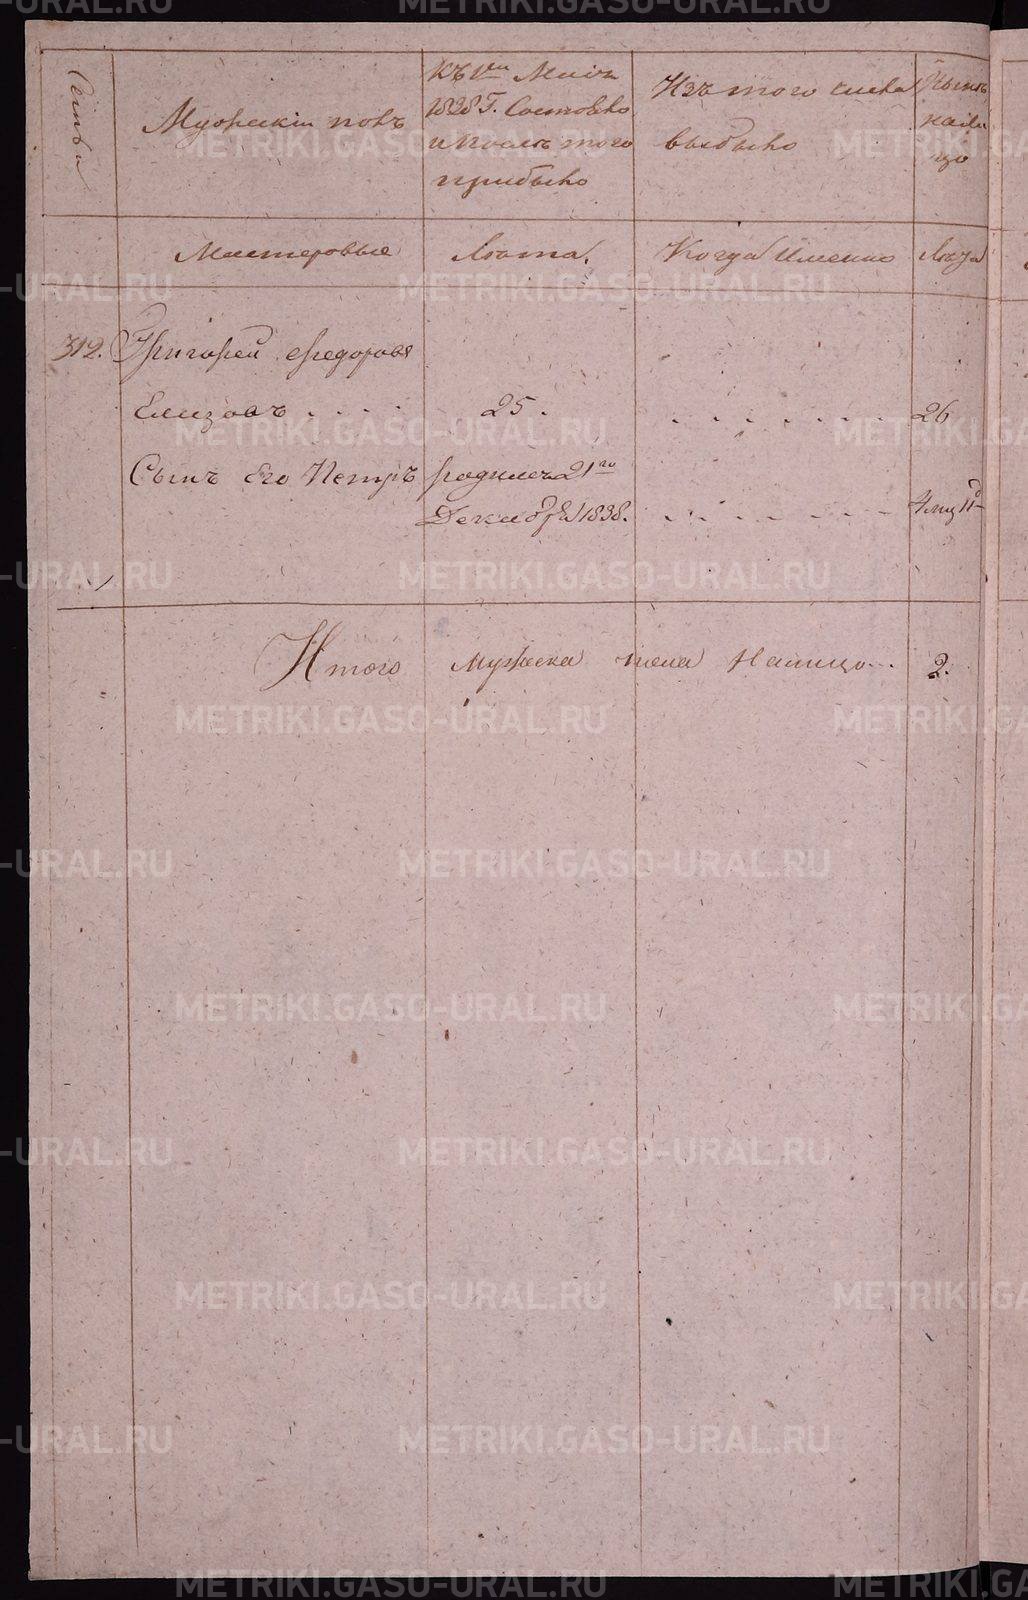 Семьи
Мужескiй полъ
Къ 1му Маiя
1838 г. Состояло
и после того
прибыло
Изъ того числа
выбыло
Ныне
нали
цо
Мастеровые
Лета.
Когда Именно
Лета
312. Григорей Федоровъ
Елизовъ . . . . 25. . . . . . . . 26
Сынъ Его Петръ родился 21го
Декабря 1838. . . . . . . . 4 мц 11 д
Итого мужеска пола Налицо... 2.
METRIKI.GASO-URAL.RU